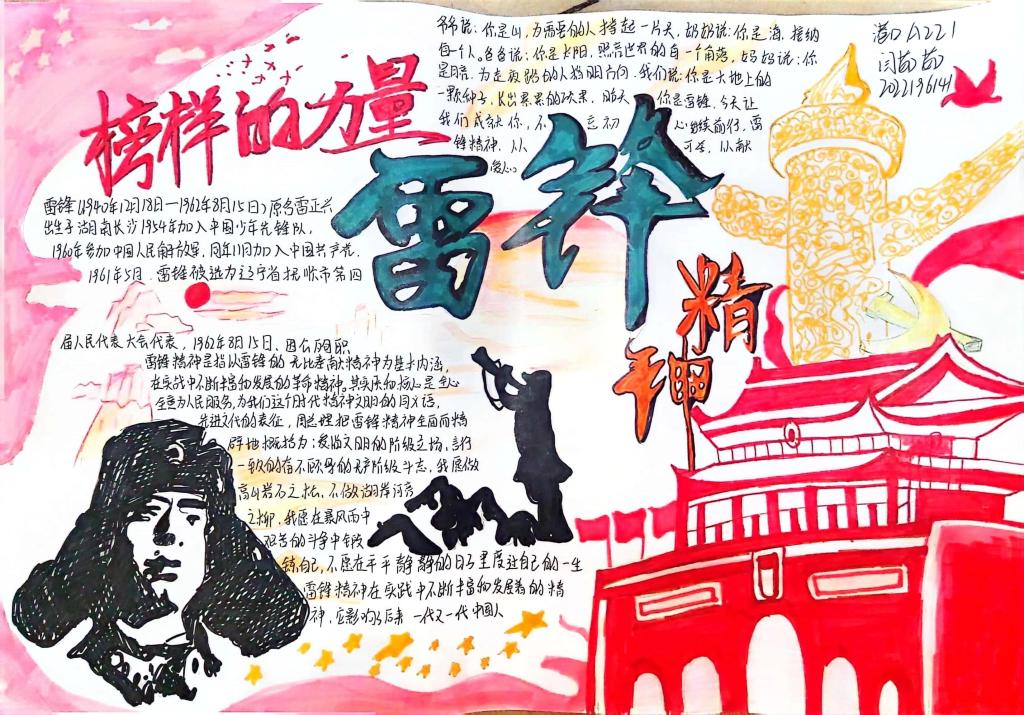 榜样的力量
雷锋
精神
爷爷说:你是山,为需要的人撑起一片天,奶奶说:你是海,接纳
每一个人。爸爸说:你是太阳,照亮世界的每一个角落,妈妈说:你
是 为走夜路的人指明方向,我们说:你是大地上的
一颗种子,长出累累的硕果,昨天 你是雷锋,今天让
我们成就你,不 忘初 心继续前行,雷
锋精神,从 可至,从献
爱心。
港口A1221
闫茹茹
雷锋(1940年12月18日—1962年8月15日)原名雷正兴
出生于湖南长沙1954年加入中国少年先锋队,
1960年参加中国人民解放军,同年11月加入中国共产党.
1961年5月.雷锋被选为辽宁省抚顺市第四
届人民代表大会代表,1962年8月15日、因公殉职
雷锋精神是指以雷锋的无比奉献精神为基本内涵,
在实践中不断丰富和发展的革命精神。其实质和核心是全心
全意为人民服务,为我们这个时代精神文明的同义语,
先进文化的表征,周总理把雷锋精神全面而精
辟地概括为:爱憎文明的阶级立场,言行
一致的 的无产阶级斗志,我愿做
高山岩石之松,不做湖岸河旁
之柳,我愿在暴风雨中
艰苦的斗争中锻
炼自己,不愿在平平静静的日子里度过自己的一生
雷锋精神在实践中不断丰富和发展着的精
神,应影响了后来一代又一代中国人